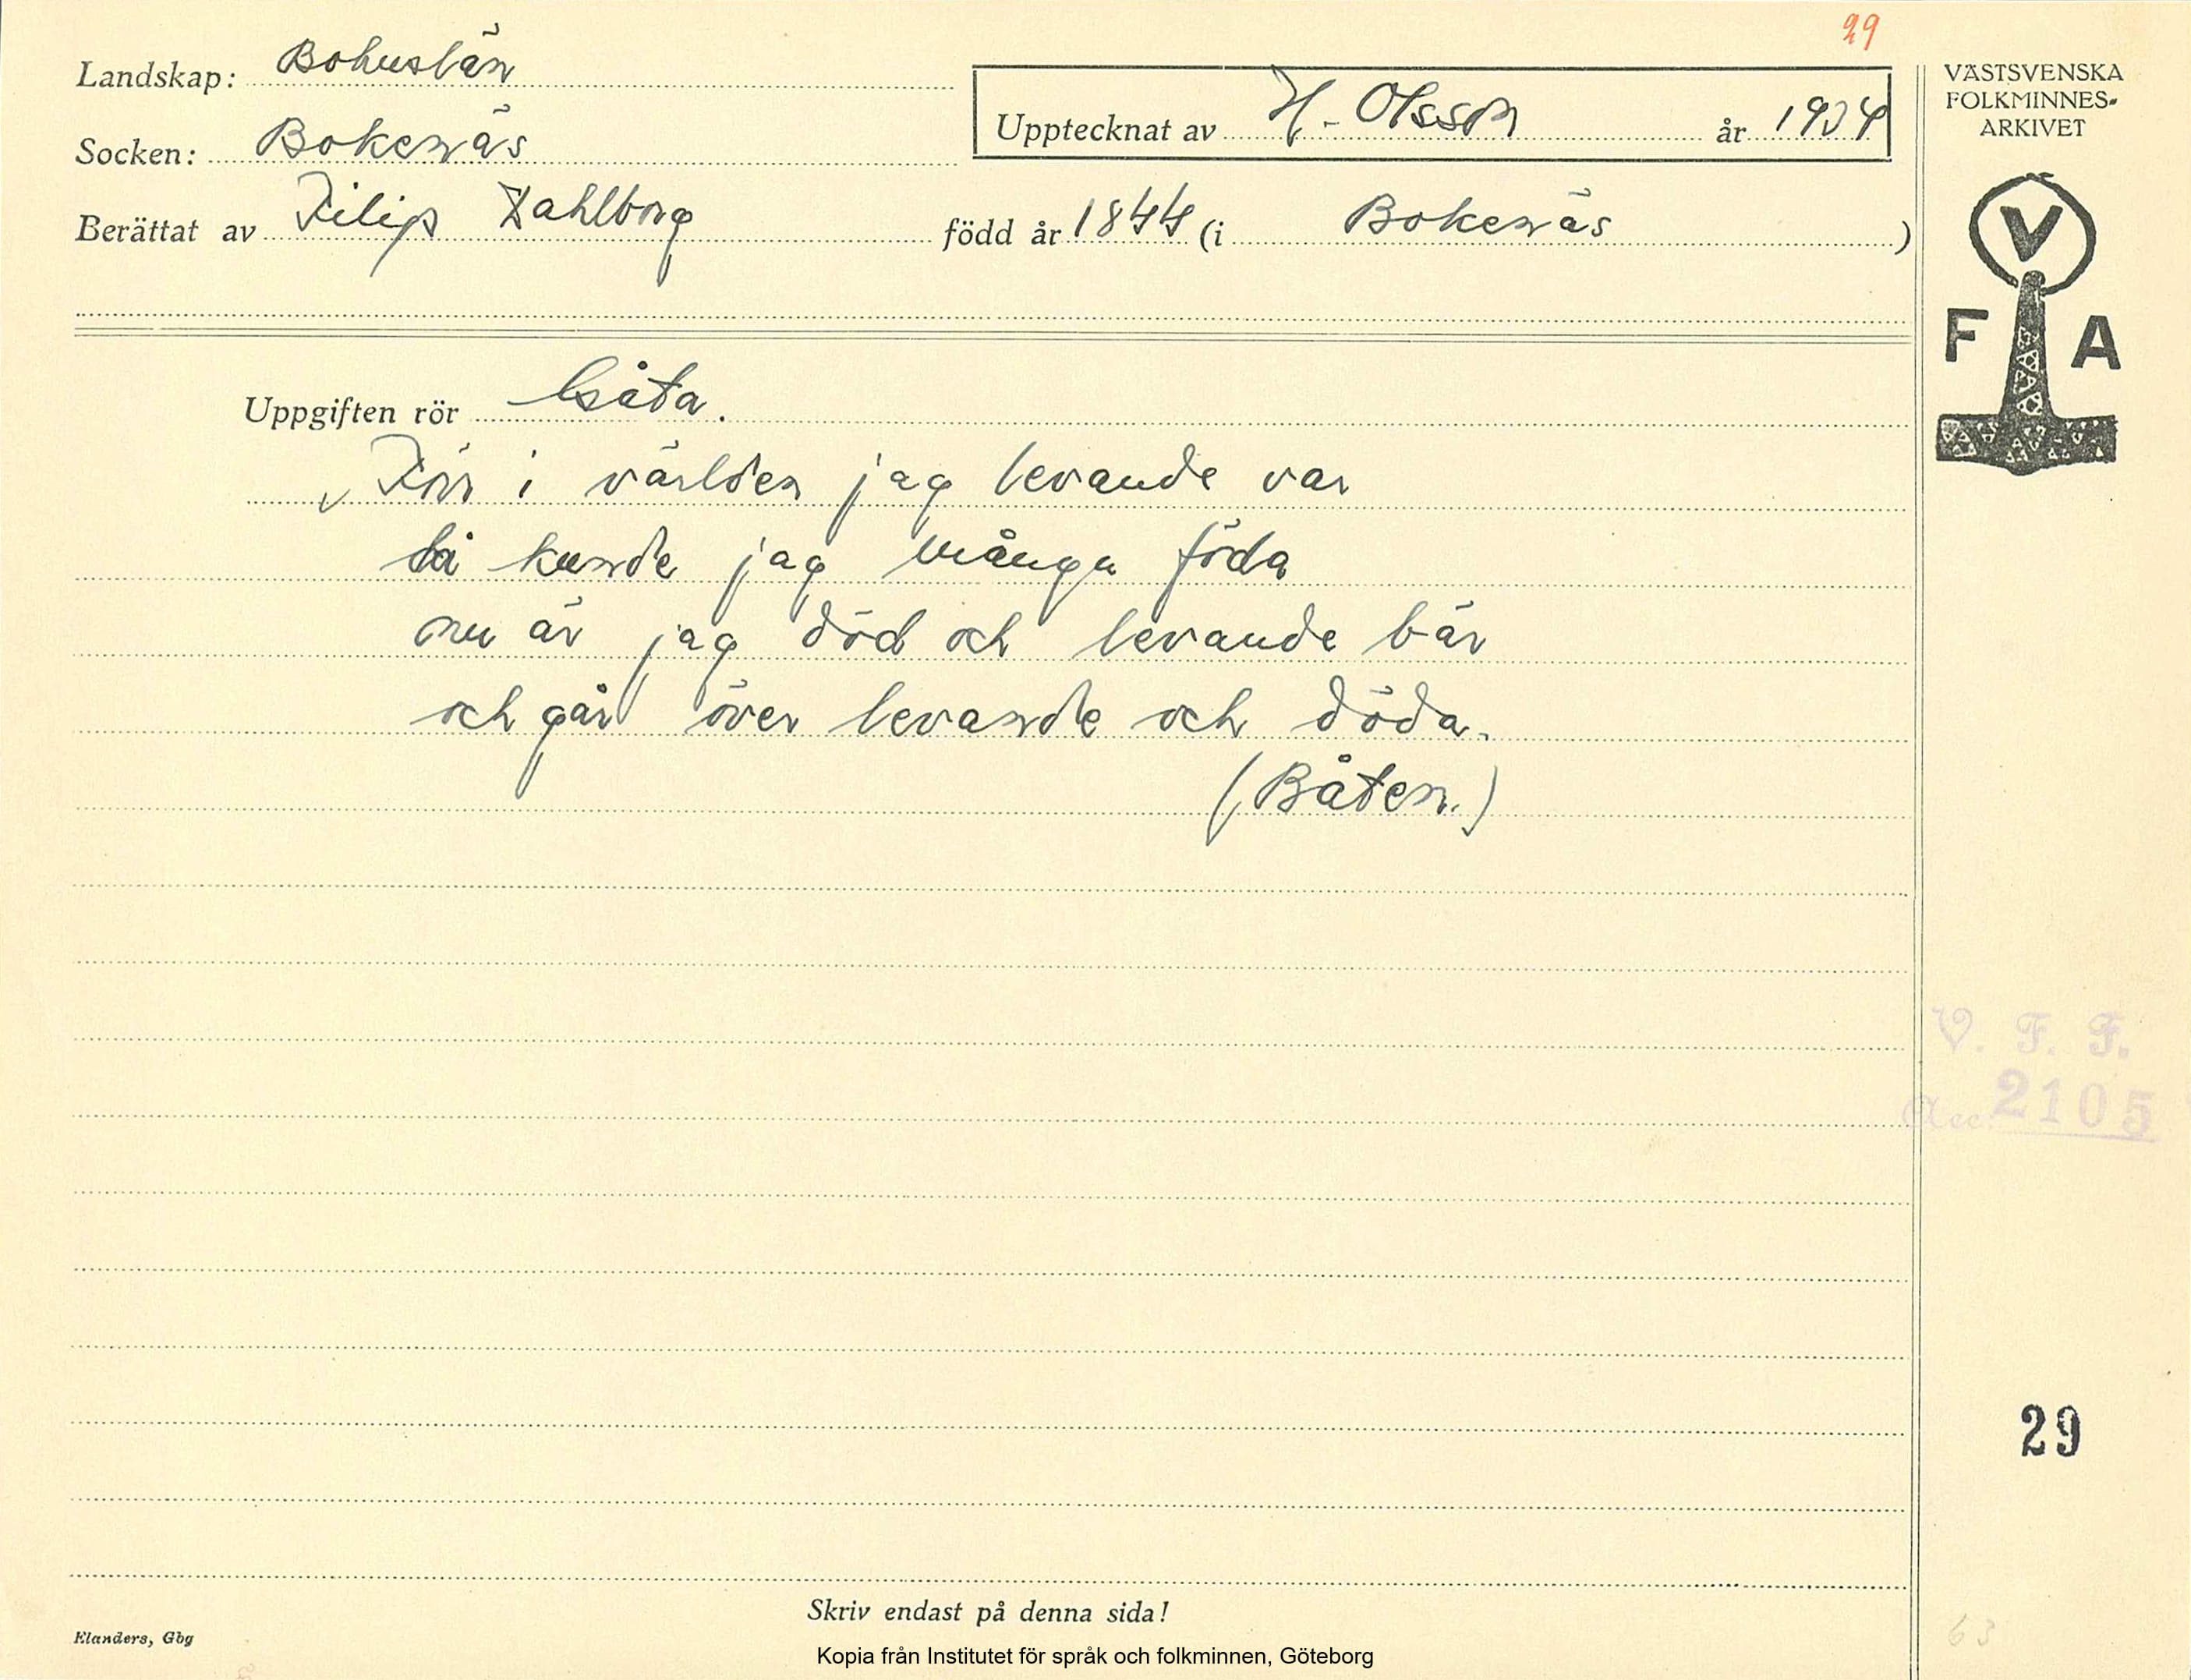 29
Landskap: Bohuslän
Socken: Bokenäs
Upptecknat av H. Olsson år 1924
Berättat av Filip Dahlborg född år 1844 (i Bokenäs)
VÄSTSVENSKA
FOLKMINNES-
ARKIVET
V
F A
Uppgiften rör Gåta.
Förr i världen jag levande var
då kunde jag många föda
nu är jag död och levande bär
och går över levande och döda.
(Båten.)
V. F. F.
Acc. 2105
29
Skriv endast på denna sida!
Elanders, Gbg
63
Kopia från Institutet för språk och folkminnen, Göteborg